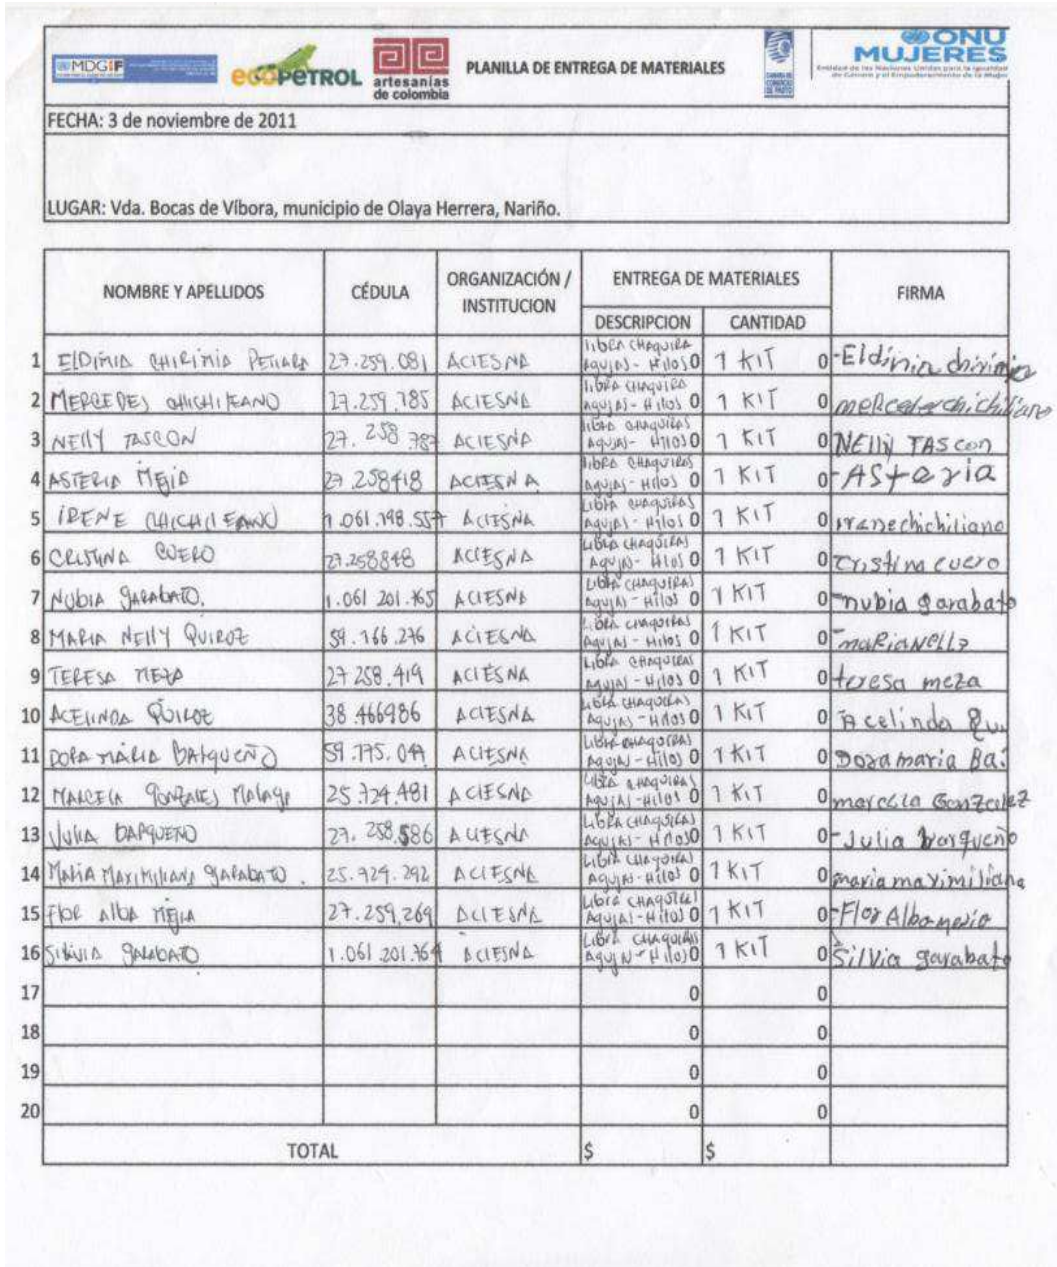 MDGIF
ecOPETROL
artesanías
de colombia
PLANILLA DE ENTREGA DE MATERIALES
CAMARA DE
COMERCIO
DE PASTO
ONU
MUJERES
Entidad de las Naciones Unidas para la Igualdad
de Género y el Empoderamiento de la Mujer
FECHA: 3 de noviembre de 2011
LUGAR: Vda. Bocas de Víbora, municipio de Olaya Herrera, Nariño.
NOMBRE Y APELLIDOS CÉDULA ORGANIZACIÓN / INSTITUCION ENTREGA DE MATERIALES FIRMA
DESCRIPCION CANTIDAD
1 ELDIMIA CHIRIMIA 27.259.081 ACIESNA LIBRA CHAQUIRA Agujas - Hilos 0 1 KIT 0 Eldimia chirimia
2 MERCEDES CHICHILEANO 27.259.785 ACIESNA LIBRA CHAQUIRA Agujas - Hilos 0 1 KIT 0 mercedes chichiliano
3 NELLY TASCON 27.258.787 ACIESNA LIBRA CHAQUIRAS Agujas - Hilos 0 1 KIT 0 NELLY TAScon
4 ASTERIA MEJIA 27.258418 ACIESNA LIBRA CHAQUIRAS Agujas - Hilos 0 1 KIT 0 ASteria
5 IRENE CHICHILEANO 1.061.198.557 ACIESNA LIBRA CHAQUIRAS Agujas - Hilos 0 1 KIT 0 iranechichiliano
6 CRISTINA CUERO 27.258848 ACIESNA LIBRA CHAQUIRAS Agujas - Hilos 0 1 KIT 0 cristina cuero
7 NUBIA GARABATO. 1.061 201.765 ACIESNA LIBRA CHAQUIRAS Agujas - Hilos 0 1 KIT 0 nubia garabato
8 MARIA NELLY QUIROZ 59.166.276 ACIESNA LIBRA CHAQUIRAS Agujas - Hilos 0 1 KIT 0 maRiaNElly
9 TERESA MEZA 27 258.419 ACIESNA LIBRA CHAQUIRAS Agujas - Hilos 0 1 KIT 0 teresa meza
10 ACELINDA QUIROZ 38.466986 ACIESNA LIBRA CHAQUIRAS Agujas - Hilos 0 1 KIT 0 Acelinda Qui
11 DORA MARIA BARQUEÑO ACIESNA LIBRA CHAQUIRAS Agujas - Hilos 0 1 KIT 0 Doramaria Ba
12 MARCELA GONZALES Malaga 25.724.481 ACIESNA LIBRA CHAQUIRAS Agujas - Hilos 0 1 KIT 0 marcela Gonzalez
13 JULIA BARQUEÑO 27.258.586 ACIESNA LIBRA CHAQUIRAS Agujas - Hilos 0 1 KIT 0 Julia barqueño
14 MARIA MAXIMILIANA GARABATO. 25.924.292 ACIESNA LIBRA CHAQUIRAS Agujas - Hilos 0 1 KIT 0 maria maximiliana
15 Flor Alba MEJIA 27.259.269 ACIESNA LIBRA CHAQUIRAS Agujas - Hilos 0 1 KIT 0 Flor Alba mejia
16 SILVIA GARABATO 1.061 201.764 ACIESNA LIBRA CHAQUIRAS Agujas - Hilos 0 1 KIT 0 Silvia garabato
17 0 0
18 0 0
19 0 0
20 0 0
TOTAL $ $